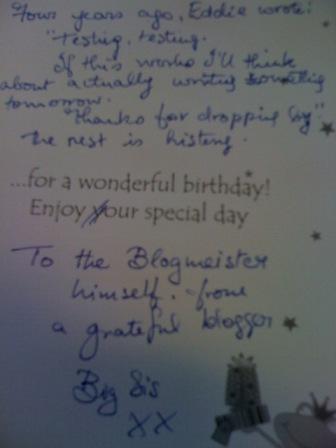 Four years ago, Eddie wrote:
"Testing, testing.
If this works I'll think
about actually writing something
tomorrow.
"Thanks for dropping by"
The rest is history.
...for a wonderful birthday!
Enjoy your special day
To the Blogmeister
himself. from
a grateful blogger
Big Sis
XX